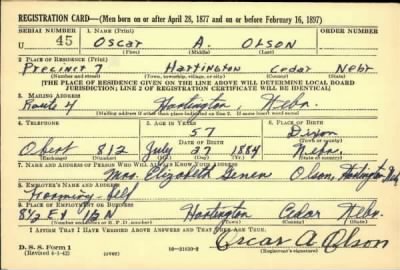 REGISTRATION CARD—(Men born on or after April 28, 1877 and on or before February 16, 1897)
SERIAL NUMBER 1. NAME (Print) ORDER NUMBER
U 45 Oscar A. Olson
(First) (Middle) (Last)
2. PLACE OF RESIDENCE (Print)
Precinct 7 Hartington Cedar Nebr
(Number and street) (Town, township, village, or city) (County) (State)
[THE PLACE OF RESIDENCE GIVEN ON THE LINE ABOVE WILL DETERMINE LOCAL BOARD
JURISDICTION; LINE 2 OF REGISTRATION CERTIFICATE WILL BE IDENTICAL]
3. MAILING ADDRESS
Route 4 Hartington, Nebr.
[Mailing address if other than place indicated on line 2. If same insert word same]
4. TELEPHONE 5. AGE IN YEARS 6. PLACE OF BIRTH
57 Dixon
DATE OF BIRTH (Town or county)
Obert 812 July 27 1884 Nebr.
(Exchange) (Number) (Mo.) (Day) (Yr.) (State or country)
7. NAME AND ADDRESS OF PERSON WHO WILL ALWAYS KNOW YOUR ADDRESS
Mrs. Elizabeth Olson, Hartington Nebr
8. EMPLOYER'S NAME AND ADDRESS
Farming-Self
9. PLACE OF EMPLOYMENT OR BUSINESS
8½ E & 1½ N Hartington Cedar Nebr.
(Number and street or R. F. D. number) (Town) (County) (State)
I AFFIRM THAT I HAVE VERIFIED ABOVE ANSWERS AND THAT THEY ARE TRUE.
D. S. S. Form 1 Oscar A. Olson
(Revised 4-1-42) (over) 16—21630-2 (Registrant's signature)